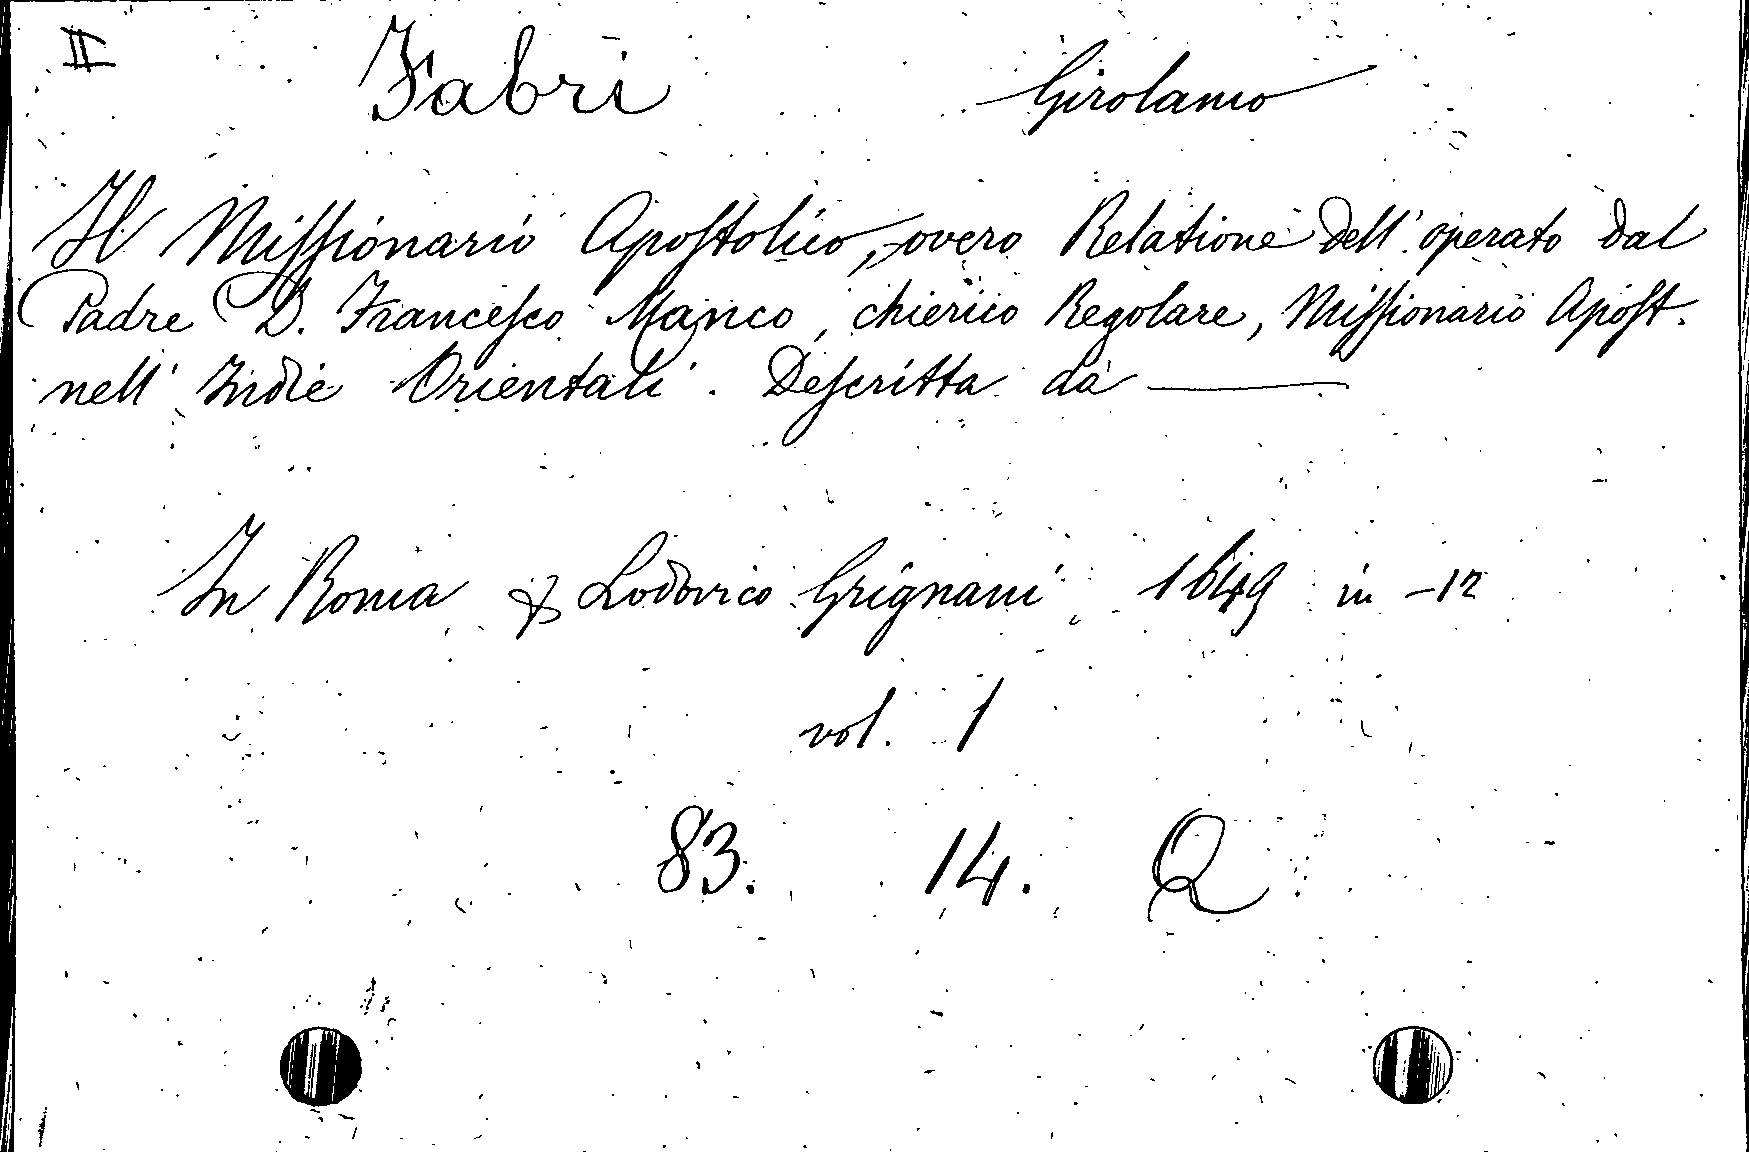 II Fabri Girolamo
Il Miſſionario Apoſtolico, overo Relatione dell' operato dal
Padre D. Franceſco Manco, chierico Regolare, Miſſionario Apoſt.
nell' Indie Orientali. Deſcritta da —
In Roma Lodovico Grignani 1649 in -12
vol. 1
83. 14. Q